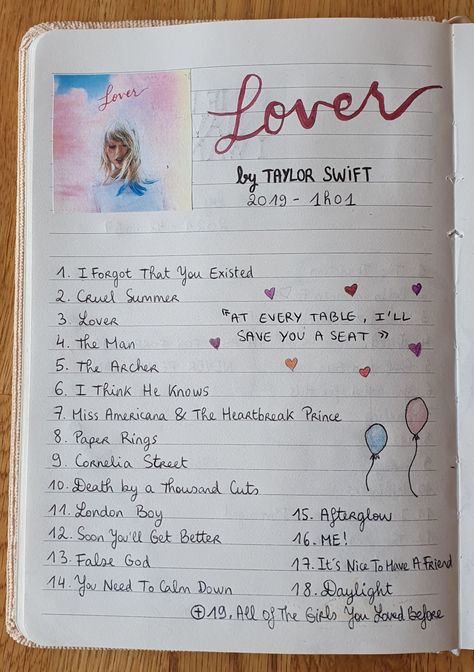 Lover
Lover
by TAYLOR SWIFT
2019 - 1h01
1. I Forgot That You Existed
2. Cruel Summer
3. Lover
"AT EVERY TABLE, I'LL
SAVE YOU A SEAT »
4. The Man
5. The Archer
6. I Think He Knows
7. Miss Americana & The Heartbreak Prince
8. Paper Rings
9. Cornelia Street
10. Death by a Thousand Cuts
11. London Boy
12. Soon You'll Get Better
13. False God
14. You Need To Calm Down
15. Afterglow
16. ME!
17. It's Nice To Have A Friend
18. Daylight
⊕19. All Of The Girls You Loved Before